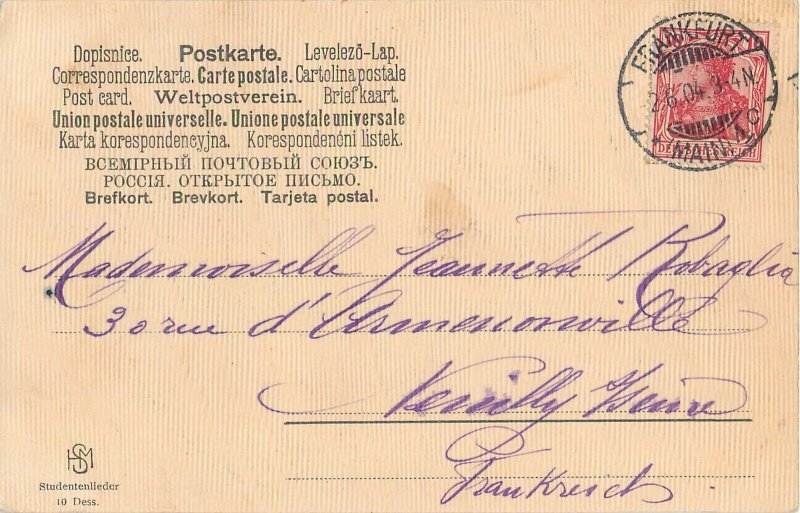 Dopisnice. Postkarte. Levelező-Lap.
Correspondenzkarte. Carte postale. Cartolina postale
Post card. Weltpostverein. Briefkaart.
Union postale universelle. Unione postale universale
Karta korespondencyjna. Korespondenční listek.
ВСЕМІРНЫЙ ПОЧТОВЫЙ СОЮЗЪ.
РОССІЯ. ОТКРЫТОЕ ПИСЬМО.
Brefkort. Brevkort. Tarjeta postal.
FRANKFURT
2.6.04.3-4N
MAIN
DEUTSCHES REICH
Mademoiselle Jeannette Robaglia
30 rue d'Armenonville
Neuilly Seine
Frankreich
HSM
Studentenlieder
10 Dess.